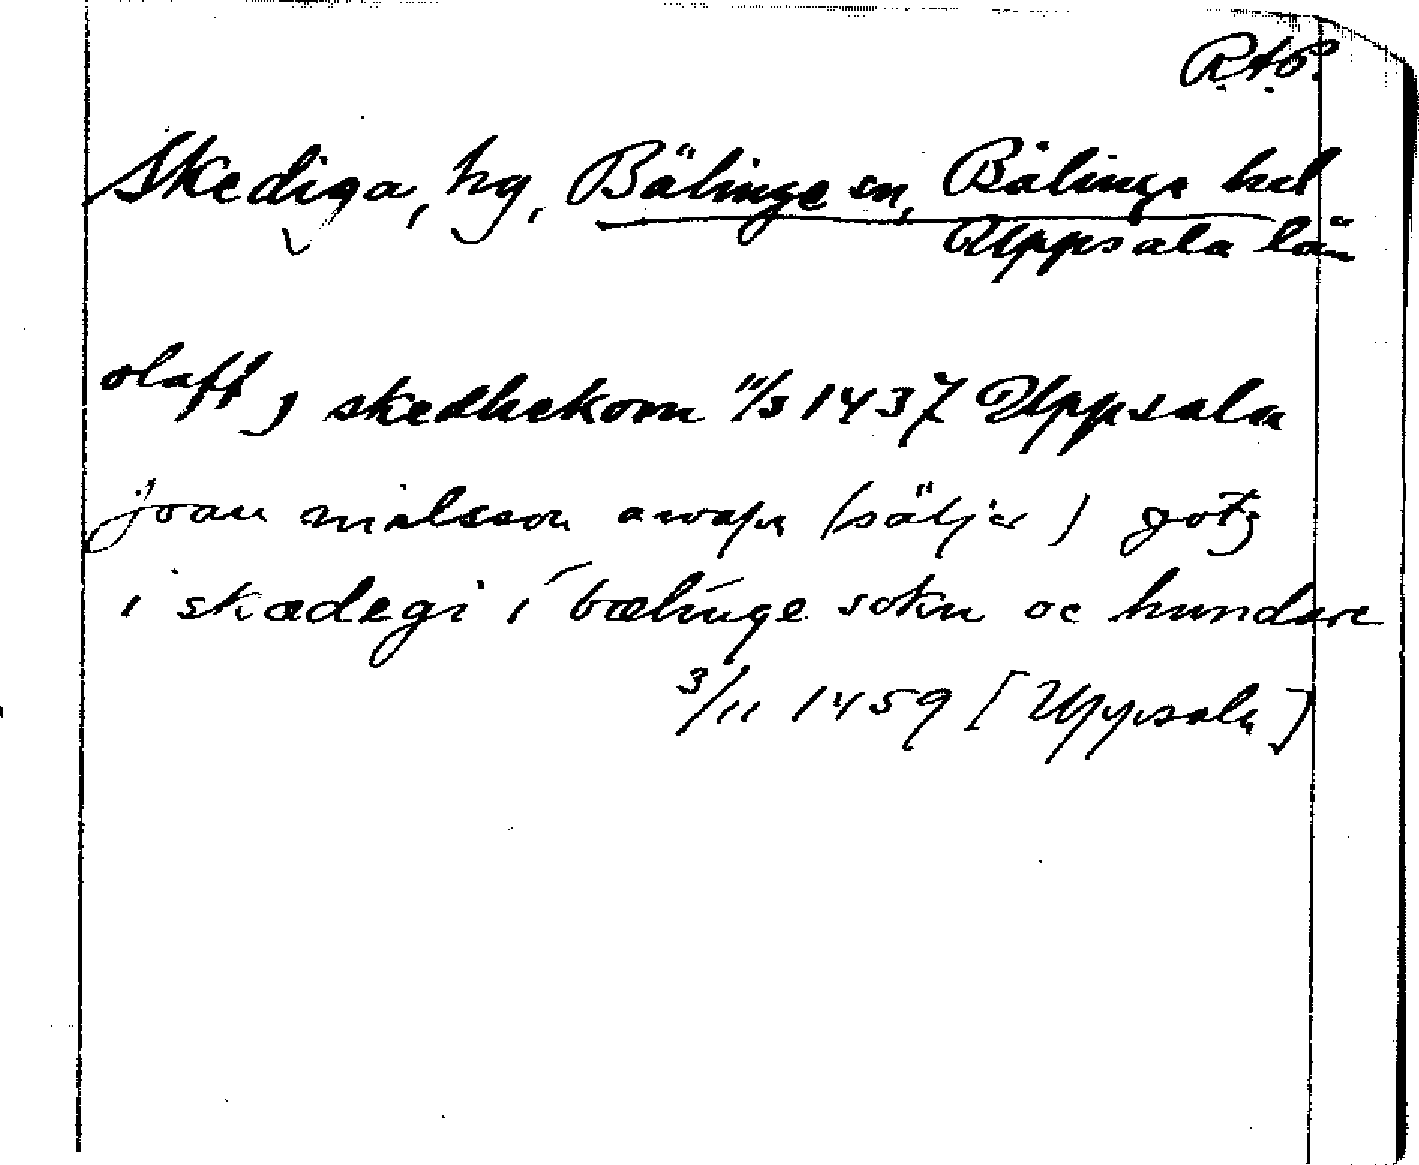 R.A.P.
Skediga, by, Bälinge sn, Bälinge hd
Uppsala län
olaff j skedhekom 11/3 1437 Uppsala
joan nielsson (säljer) gotz
i skædegi i bælinge sokn oc hundare
3/11 1459 [Uppsala]